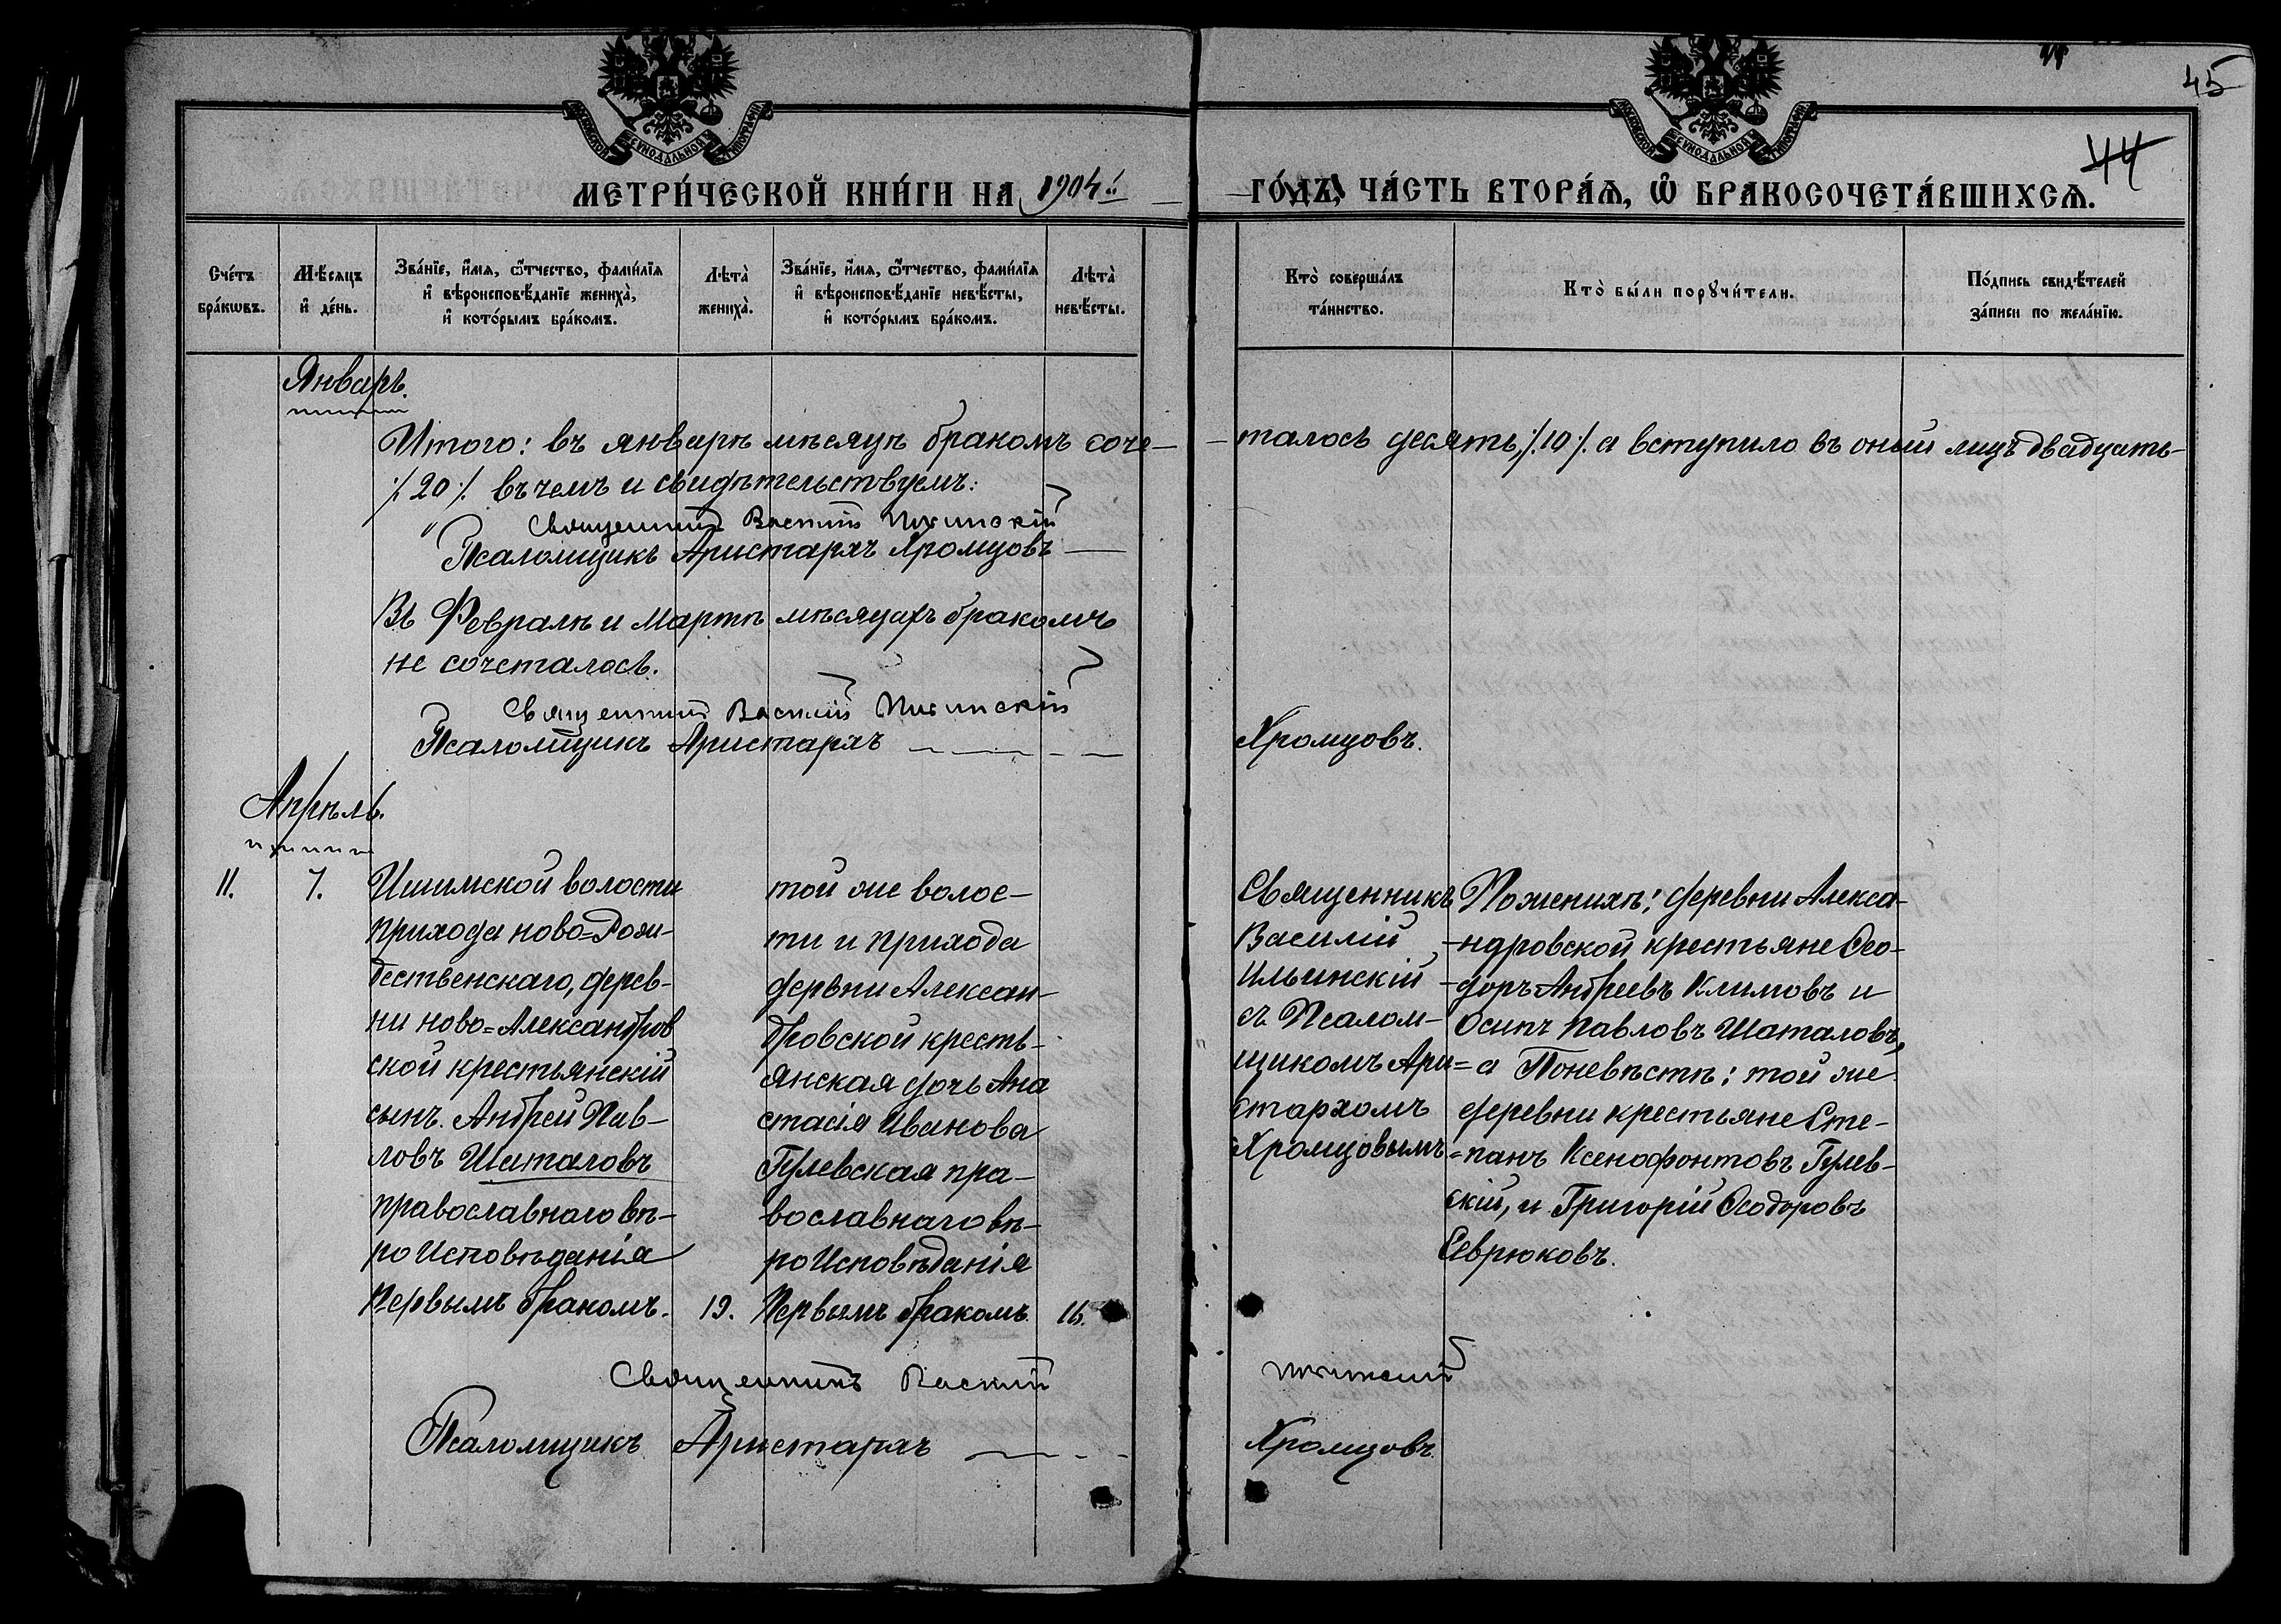 45
44
МОСКОВСКОЙ СѴНОДАЛЬНОЙ ТИПОГРАФІИ
МОСКОВСКОЙ СѴНОДАЛЬНОЙ ТИПОГРАФІИ
МЕТРИ́ЧЕСКОЙ КНИ́ГИ НА 1904й
ГО́ДЪ, ЧА́СТЬ ВТОРА́Ѧ, Ѡ҆ БРАКОСОЧЕТА́ВШИХСѦ.
Сче́тъ бра́кѡвъ.
Мѣ́сѧцъ и҆ де́нь.
Зва́нїе, и҆́мѧ, ѻ҆́тчество, фами́лїѧ и҆ вѣроисповѣ́данїе жениха̀, и҆ кото́рымъ бра́комъ.
Лѣта̀ жениха̀.
Зва́нїе, и҆́мѧ, ѻ҆́тчество, фами́лїѧ и҆ вѣроисповѣ́данїе невѣ́сты, и҆ кото́рымъ бра́комъ.
Лѣта̀ невѣ́сты.
Кто̀ соверша́лъ та́инство.
Кто̀ бы́ли порꙋчи́тели.
По́дпись свидѣ́телей за́писи по жела́нїю.
Январь.
Итого: въ январѣ мѣсяцѣ бракомъ соче-
талось десять ./.10./. а вступило въ оный лицъ двадцать
./.20./. въ чемъ и свидѣтельствуемъ:
Священникъ Василій Ильинскій
Псаломщикъ Аристархъ Хромцовъ
Въ Февралѣ и Мартѣ мѣсяцахъ бракомъ
не сочеталось.
Священникъ Василій Ильинскій
Псаломщикъ Аристархъ
Хромцовъ.
Апрѣль.
11.
7.
Ишимской волости
прихода ново=Рож-
дественскаго, дерев-
ни ново=Александров
ской крестьянскій
сынъ. Андрей Пав-
ловъ Шаталовъ
православнаго вѣ-
роИсповѣданія
Первымъ бракомъ.
19.
той же волос-
ти и прихода
дервни Алексан-
дровской кресть-
янская дочь Ана
стасія Иванова
Гулевская пра-
вославнаго вѣ-
роИсповѣданія
Первымъ бракомъ.
16.
Священникъ
Василій
Ильинскій
съ Псалом-
щикомъ Ари=
стархомъ
Хромцовымъ
Поженихѣ: деревни Алекса-
-ндровской крестьяне Ѳео-
-доръ Андреевъ Климовъ и
Осипъ Павловъ Шаталовъ,
а Поневѣстѣ: той же
деревни крестьяне Сте-
=панъ Ксенофонтовъ Гулев-
скій, и Григорій Ѳеодоровъ
Севрюковъ.
Священникъ Василій
Ильинскій
Псаломщикъ Аристархъ
Хромцовъ.